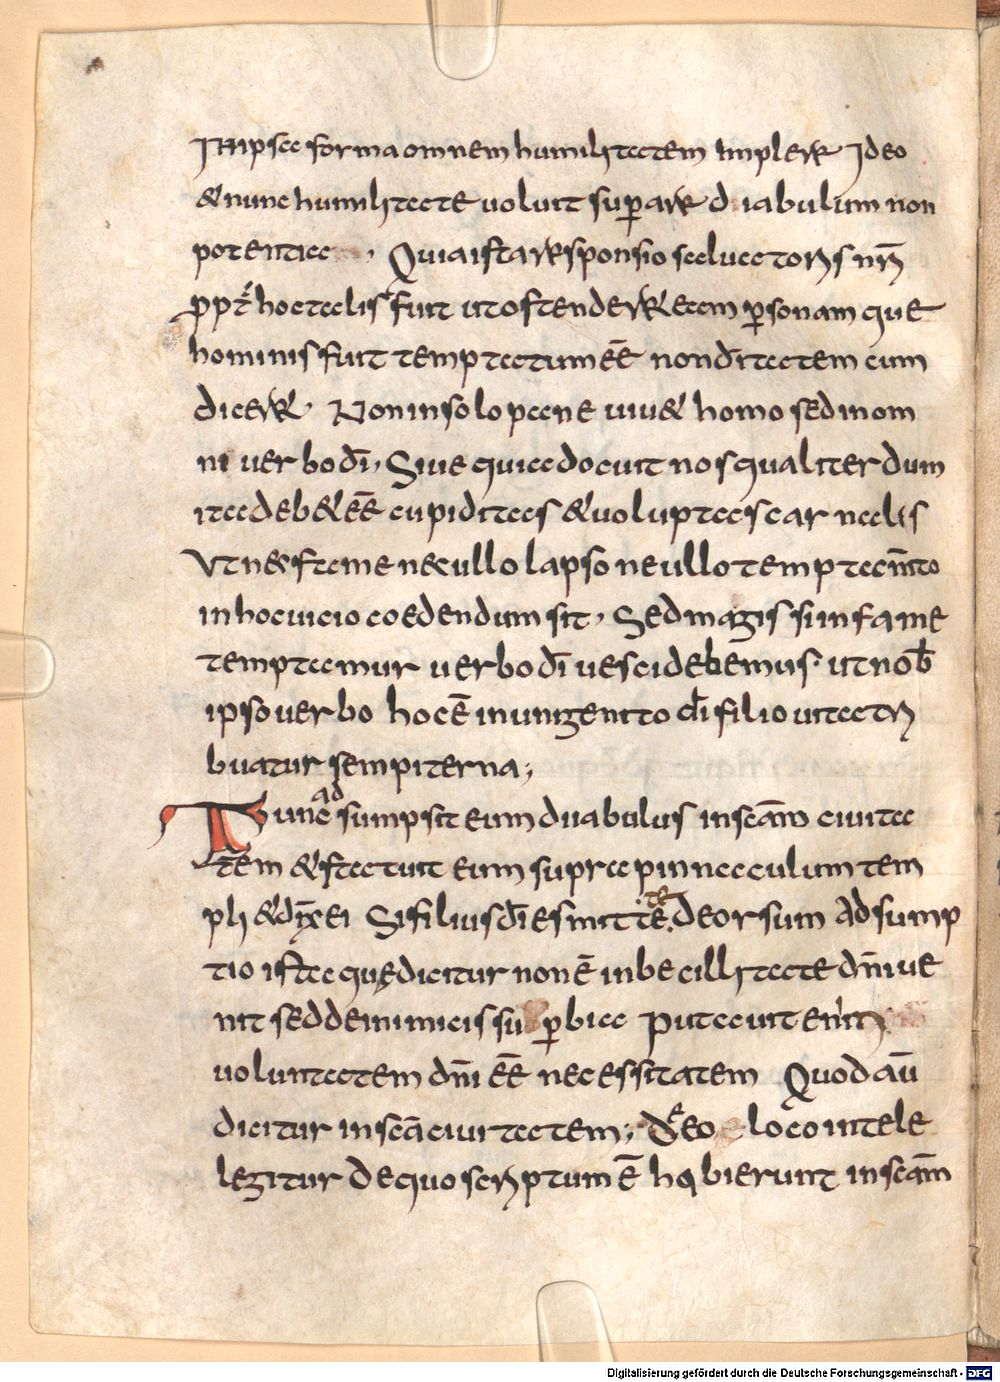 In ipsa forma omnem humilitatem impleret Ideo
& nunc humilitate voluit sup̄are diabulum non
potentia, Quia ista responsio salvatoris nr̄i
p̄pt̄ hoc talis fuit ut ostenderet eam p̄sonam que
hominis fuit temptatum ēē non d̄itatem eum
diceret. Non in solo pane viv& homo sed in om
ni verbo dī, Sive quia docuit nos qualiter dum
ita deb& ēē cupiditas & voluptas carnalis
Ut n& fame nec ullo lapso ne ullo temptam̄to
in hoc vicio coedendum sit, Sed magis si in fame
temptamur verbo dī vesci debemus. ut nob̄
ipso verbo hoc ē in unigenito dī filio vita tri
buatur sempiterna;
Tunc adsumpsit eum diabulus in scām civita
tem & statuit eum supra pinnaculum tem
pli & dix̄ ei Si filius dī es mitte te deorsum Adsump
tio ista quę dicitur non ē inbecillitate dn̄i ve
nit sed de inimici sup̄bia Putavit enim
voluntatem dn̄i ēē necessitatem Quod aū
dicitur in scā civitatem; De eo loco intele
legitur de quo scriptum ē h abierunt in scām